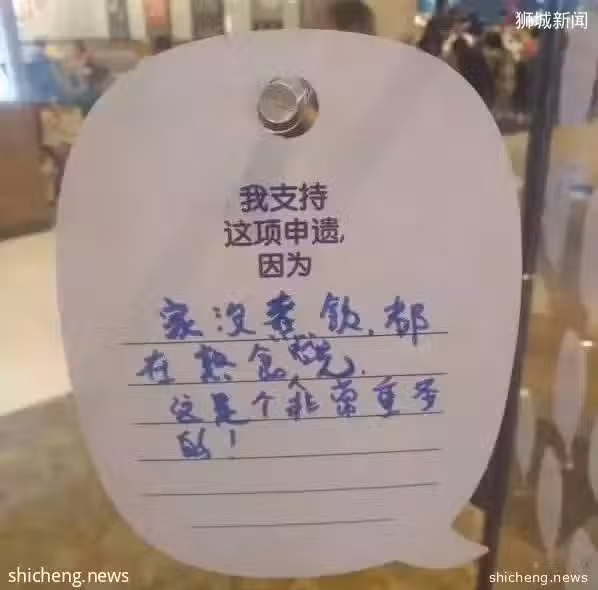 狮城新闻
我支持
这项申遗,
因为
家没煮饮,都
在熟食吃.
这是个非常重
的!
shicheng.news
shicheng.news